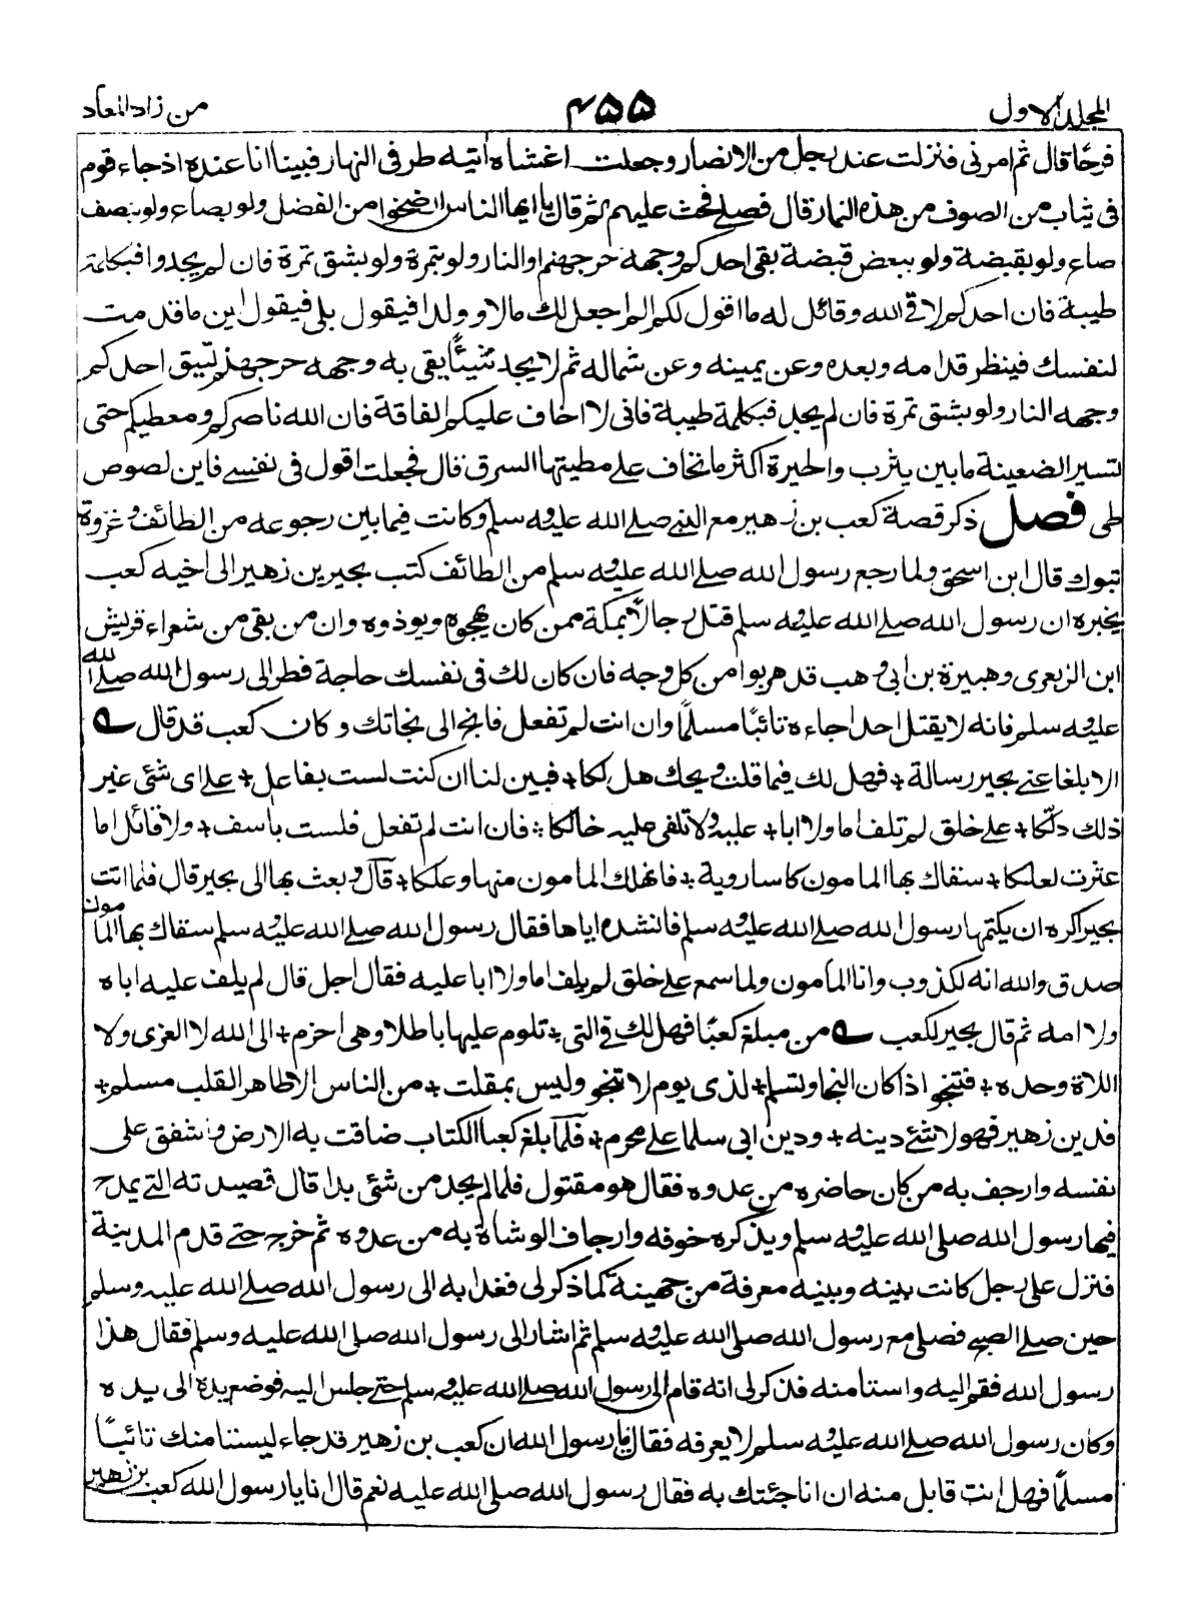 المجلد الاول
۴۵۵
من زاد المعاد
فرحًا قال ثم امرنی فنزلت عند رجل من الانصار وجعلت اغشاہ اٰتیہ طرفی النہار فبینا انا عندہ اذ جاء قوم
فی ثیاب من الصوف من ھذہ النمار قال فصلے فحث علیہم ثم قال یا ایھا الناس ارضخوا من الفضل ولو بصاع ولو بنصف
صاع ولو بقبضة ولو ببعض قبضة یقی احدکم وجھہ حرجھنم او النار ولو بتمرة ولو بشق تمرة فان لم یجدوا فبکلمة
طیبة فان احدکم لاقی اللہ وقائل لہ ما اقول لکم الم اجعل لك مالا و ولدا فیقول بلی فیقول این ما قدمت
لنفسك فینظر قدامہ وبعدہ وعن یمینہ وعن شمالہ ثم لا یجد شیئًا یقی بہ وجھہ حرجھنم لیق احدکم
وجھہ النار ولو بشق تمرة فان لم یجد فبکلمة طیبة فانی لا اخاف علیکم الفاقة فان اللہ ناصرکم ومعطیکم حتی
تسیر الضعینة ما بین یثرب والحیرة اکثر ما تخاف علے مطیتھا السرق قال فجعلت اقول فی نفسے فاین لصوص
طی فصل ذکر قصة کعب بن زھیر مع النبے صلے اللہ علیہ وسلم وکانت فیما بین رجوعہ من الطائف وغزوة
تبوك قال ابن اسحق ولما رجع رسول اللہ صلے اللہ علیہ وسلم من الطائف کتب بجیر بن زھیر الی اخیہ کعب
یخبرہ ان رسول اللہ صلے اللہ علیہ وسلم قتل رجالًا بمکة ممن کان یھجوہ ویوذوہ وان من بقی من شعراء قریش
ابن الزبعری وھبیرة بن ابی وھب قد ھربوا من کل وجہ فان کان لك فی نفسك حاجة فطر الی رسول اللہ صلے اللہ
علیہ وسلم فانہ لا یقتل احدا جاءہ تائبًا مسلمًا وان انت لم تفعل فانج الی نجاتك وکان کعب قد قال ؎
الا بلغا عنے بجیر رسالة + فھل لك فیما قلت ویحك ھل لکا + فبین لنا ان کنت لست بفاعل + علے ای شئی غیر
ذلك دلّکا + علے خلق لم تلف اما ولا ابا + علیہ ولا تلفی علیہ خالکا + فان انت لم تفعل فلست باسف + ولا قائل اما
عثرت لعالکا + سقاك بھا المامون کاسا رویة + فانھلك المامون منھا وعلکا + قال وبعث بھا الی بجیر قال فلما اتت
بجیرا کرہ ان یکتمھا رسول اللہ صلے اللہ علیہ وسلم فانشدہ ایاھا فقال رسول اللہ صلے اللہ علیہ وسلم سقاك بھا المامون
صدق واللہ انہ لکذوب وانا المامون ولما سمع علے خلق لم یلف اما ولا ابا علیہ فقال اجل قال لم یلف علیہ اباہ
ولا امہ ثم قال بجیر لکعب ؎ من مبلغ کعبًا فھل لك فی التی + تلوم علیھا باطلا وھی احزم + الی اللہ لا العزی ولا
اللاة وحدہ + فتنجو اذا کان النجا وتسلم + لدی یوم لا تنجو ولیس بمفلت + من الناس الا طاھر القلب مسلم +
فدین زھیر فھو لا شئے دینہ + ودین ابی سلما علے محرم + فلما بلغ کعبا الکتاب ضاقت بہ الارض واشفق علی
نفسہ وارجف بہ من کان حاضرہ من عدوہ فقال ھو مقتول فلما لم یجد من شئی بدا قال قصیدتہ التے یمدح
فیھا رسول اللہ صلی اللہ علیہ وسلم ویذکرہ خوفہ وارجاف الوشاة بہ من عدوہ ثم خرج حتے قدم المدینة
فنزل علی رجل کانت بینہ وبینہ معرفة من جھینة کما ذکر لی فغدا بہ الی رسول اللہ صلے اللہ علیہ وسلم
حین صلے الصبح فصلی مع رسول اللہ صلی اللہ علیہ وسلم ثم اشار الی رسول اللہ صلی اللہ علیہ وسلم فقال ھذا
رسول اللہ فقم الیہ واستامنہ فذکر لی انہ قام الی رسول اللہ صلے اللہ علیہ وسلم حتے جلس الیہ فوضع یدہ الی یدہ
وکان رسول اللہ صلے اللہ علیہ وسلم لا یعرفہ فقال یا رسول اللہ ان کعب بن زھیر قد جاء لیستامنك تائبًا
مسلمًا فھل انت قابل منہ ان انا جئتك بہ فقال رسول اللہ صلی اللہ علیہ نعم قال انا یا رسول اللہ کعب بن زھیر